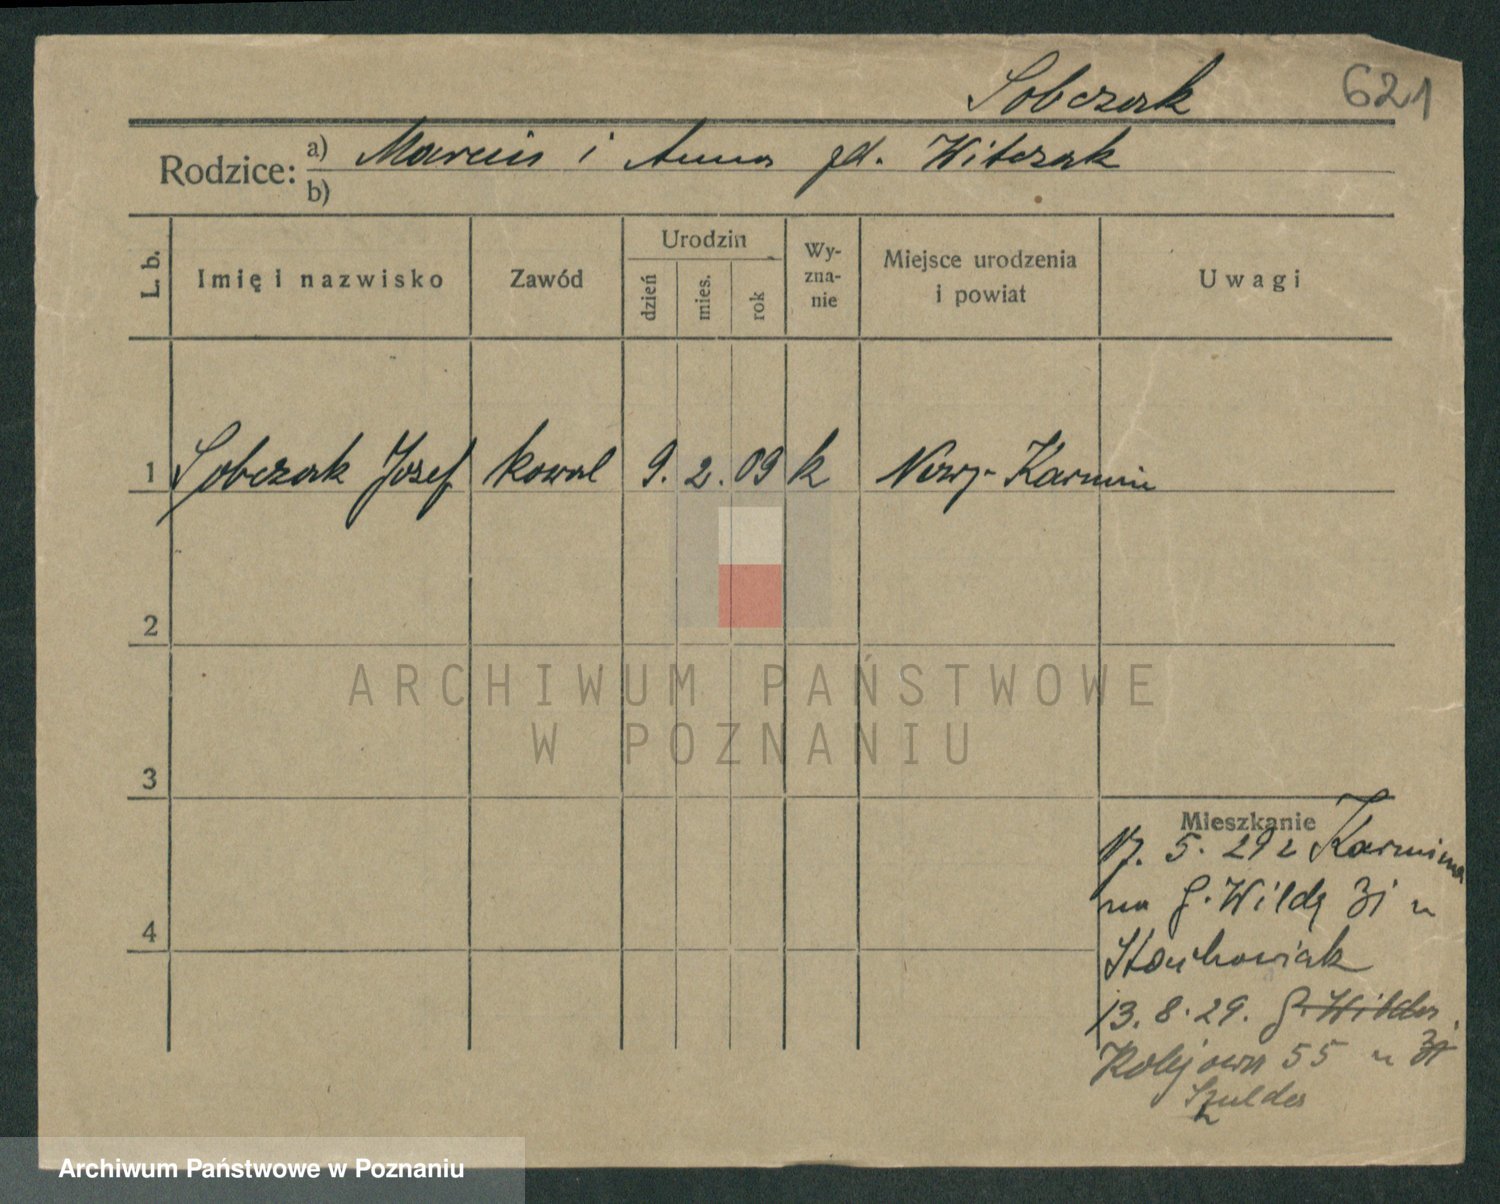 Sobczak 621
Rodzice: a) Marcin i Anna zd. Witczak
b)
L. b.
Imię i nazwisko
Zawód
Urodzin
dzień
mies.
rok
Wy-
zna-
nie
Miejsce urodzenia
i powiat
Uwagi
1 Sobczak Józef kowal 9. 2. 09 k Nowy-Karmin
2
ARCHIWUM PAŃSTWOWE
W POZNANIU
3
Mieszkanie
17. 5. 29 z Karmina
na G. Wildę 31 u
4
Stachowiak
13. 8. 29. G. Wilda 31
Kolejowa 55 u
Szulda
Archiwum Państwowe w Poznaniu